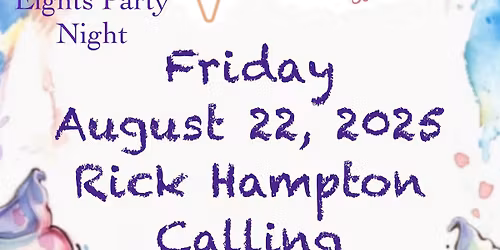 Lights Party
Night
Friday
August 22, 2025
Rick Hampton
Calling